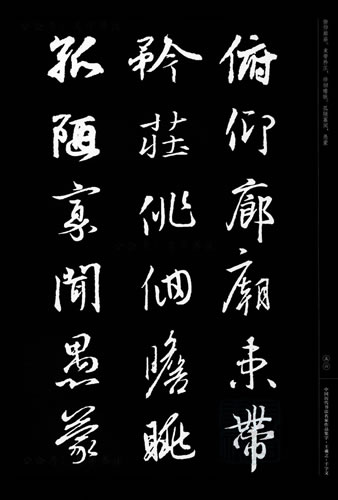 俯仰廊廟束帶
矜莊佪瞻眺
孤陋寡聞愚蒙